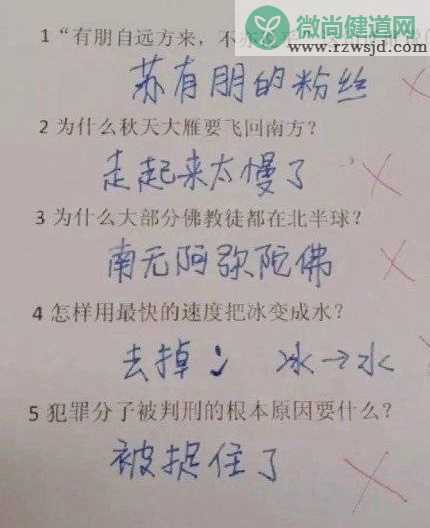 微尚健道网
www.rzwsjd.com
1 “有朋自远方来，不亦
苏有朋的粉丝
2 为什么秋天大雁要飞回南方？
走起来太慢了
3 为什么大部分佛教徒都在北半球？
南无阿弥陀佛
4 怎样用最快的速度把冰变成水？
去掉冫 冰→水
5 犯罪分子被判刑的根本原因要什么？
被捉住了